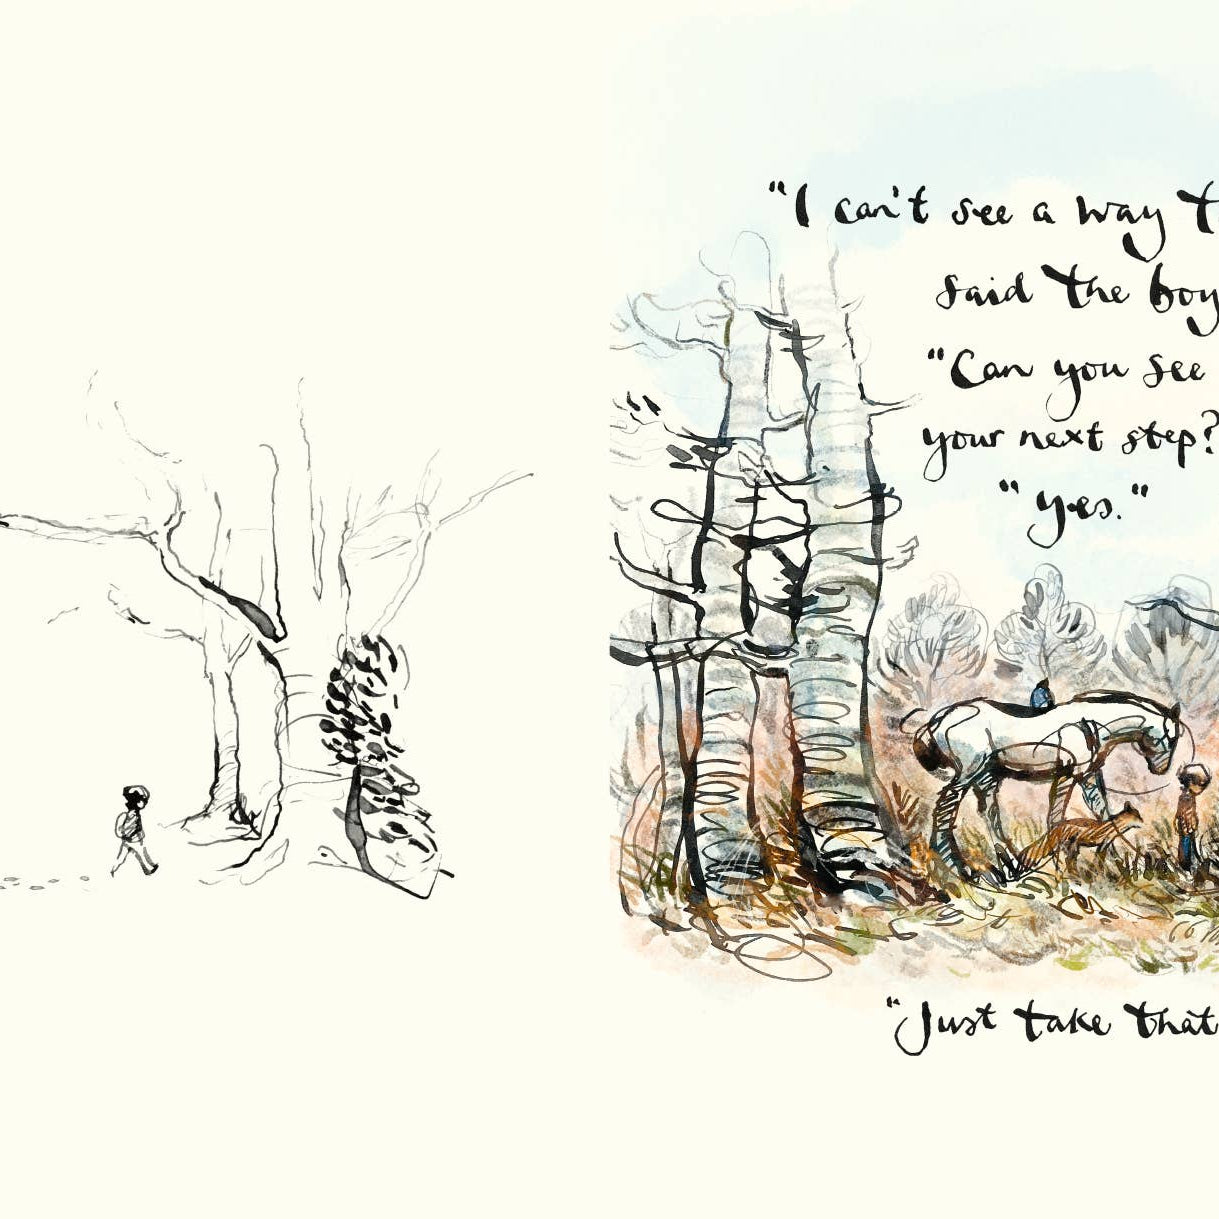 "I can't see a way
said the boy
"Can you see
your next step?
"Yes."
"Just take that